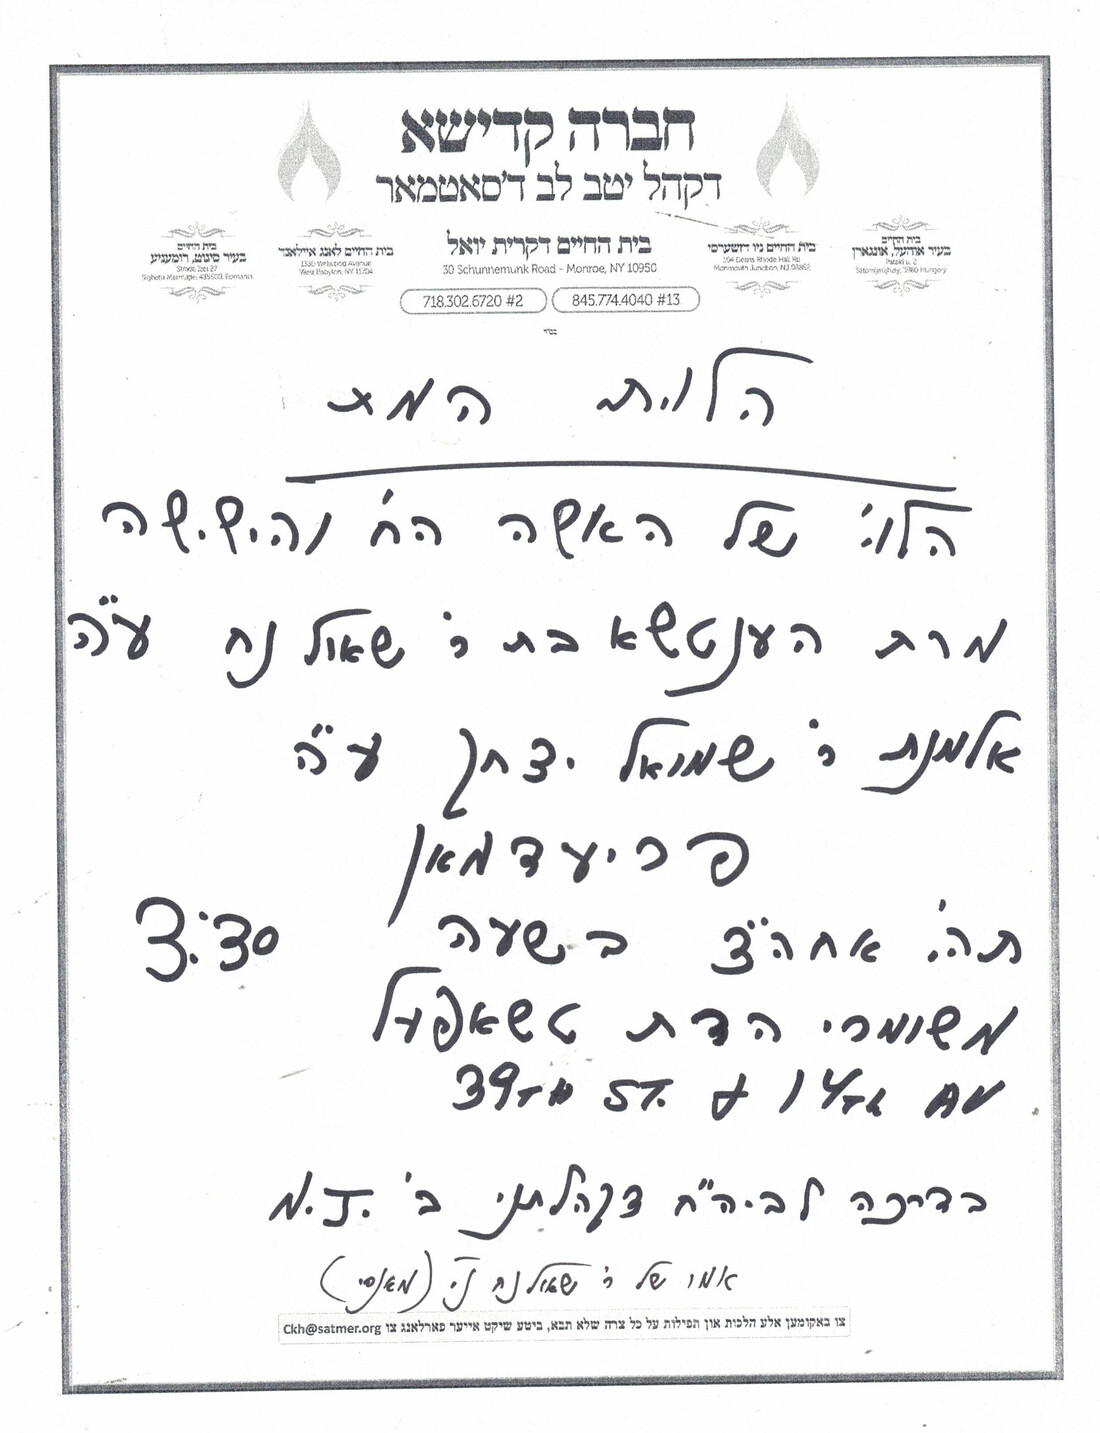 חברה קדישא
דקהל יטב לב ד'סאטמאר
בית החיים
בעיר אוהעל, אונגארן
Petofi u. 2
Satoraljaujhely, 3980 Hungary
בית החיים ניו דזשערסי
104 Deans Rhode Hall Rd
Monmouth Junction, NJ 08852
בית החיים דקרית יואל
30 Schunnemunk Road - Monroe, NY 10950
718.302.6720 #2
845.774.4040 #13
בית החיים לאנג איילאנד
Wellwood Avenue
West Babylon, NY 11704
בית החיים
בעיר סיגוט, רומעניע
27
435500, Romania
בס"ד
הלוית המת
הלוי' של האשה הח' והישישה
מרת הענטשא בת ר' שאול נח ע"ה
אלמנת ר' שמואל יצחק ע"ה
פריעדמאן
תהי' אחה"צ בשעה 3:30
משומרי הדת טשאפעל
39TH ST. & 14TH AV
בדרכה לביה"ח דקהלתינו ב' N.J.
אמו של ר' שאול נח ני' (מאנסי)
צו באקומען אלע הלכות און תפילות על כל צרה שלא תבא, ביטע שיקט אייער פארלאנג צו Ckh@satmer.org